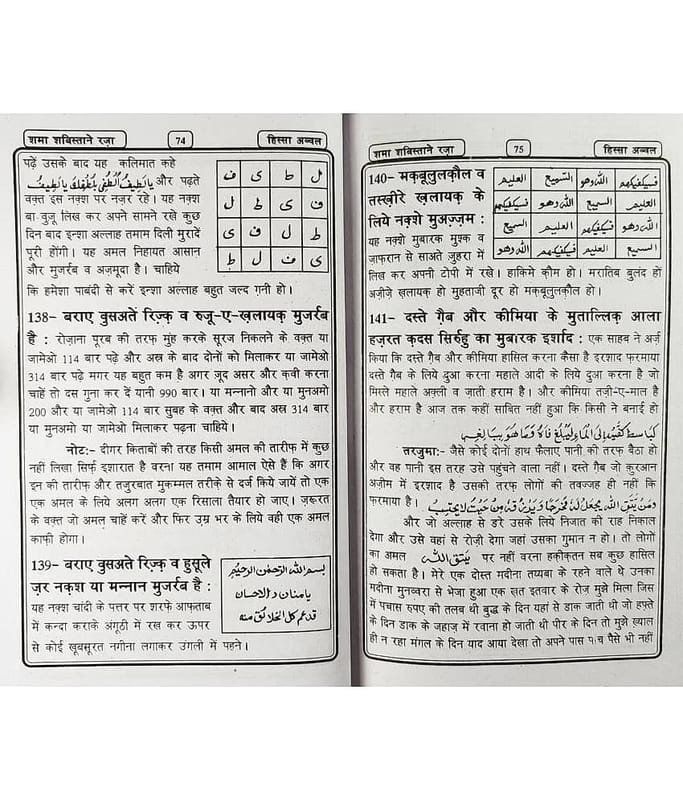 शमा शबिस्ताने रज़ा 74 हिस्सा अव्वल
पढ़ें उसके बाद यह कलिमात कहे
يا لطيف الطف بى بلطفك يا لطيف और पढ़ते
वक़्त इस नक्श पर नज़र रहे। यह नक्श
बा वुज़ू लिख कर अपने सामने रखे कुछ
दिन बाद इन्शा अल्लाह तमाम दिली मुरादें
पूरी होंगी। यह अमल निहायत आसान
और मुजर्रब व अज़मूदा है। चाहिये
ل ط ى ف
ف ى ط ل
ط ل ف ى
ى ف ل ط
कि हमेशा पाबंदी से करें इन्शा अल्लाह बहुत जल्द गनी हो।
138- बराए वुसअते रिज़्क़ व रुजू-ए-ख़लायक़ मुजर्रब
है : रोज़ाना पूरब की तरफ़ मुंह करके सूरज निकलने के वक़्त या
जामेओ 114 बार पढ़े और अस्र के बाद दोनों को मिलाकर या जामेओ
314 बार पढ़े मगर यह बहुत कम है अगर ज़ूद असर और क़वी करना
चाहें तो दस गुना कर दें यानी 990 बार। या मन्नानो और या मुनअमो
200 और या जामेओ 114 सुबह के वक़्त और बाद अस्र 314 बार
या मुनअमो या जामेओ मिलाकर पढ़ना चाहिये।
नोट:- दीगर किताबों की तरह किसी अमल की तारीफ़ में कुछ
नहीं लिखा सिर्फ़ इशारात है वरना यह तमाम आमाल ऐसे हैं कि अगर
इन की तारीफ़ और तजुरबात मुकम्मल तरीक़े से दर्ज किये जायें तो एक
एक अमल के लिये अलग अलग एक रिसाला तैयार हो जाए। ज़रूरत
के वक़्त जो अमल चाहें करें और फिर उम्र भर के लिये वही एक अमल
काफ़ी होगा।
139- बराए वुसअते रिज़्क़ व हुसूले
ज़र नक़श या मन्नान मुजर्रब है :
यह नक़्श चांदी के पत्तर पर शरफ़े आफ़ताब
में कन्दा कराके अंगूठी में रख कर ऊपर
से कोई ख़ूबसूरत नगीना लगाकर उंगली में पहने।
بسم الله الرحمن الرحيم
يا منان ذو الاحسان
قد عم كل الخلائق منه
शमा शबिस्ताने रज़ा 75 हिस्सा अव्वल
140- मक़बूलुलक़ौल व
तस्ख़ीरे ख़लायक़ के
लिये नक्शे मुअज़्ज़म :
यह नक्शे मुबारक मुश्क व
ज़ाफ़रान से साअते ज़ुहरा में
فسيكفيكهم الله وهو السميع العليم
العليم السميع الله وهو فسيكفيكهم
الله وهو فسيكفيكهم العليم السميع
السميع العليم فسيكفيكهم الله وهو
लिख कर अपनी टोपी में रखे। हाकिमे क़ौम हो। मरातिब बुलंद हों
अज़ीज़े ख़लायक़ हो मुहताजी दूर हो मक़बूलुलक़ौल हो।
141- दस्ते ग़ैब और कीमिया के मुताल्लिक़ आला
हज़रत क़दस सिर्रुहु का मुबारक इर्शाद : एक साहब ने अर्ज़
किया कि दस्ते ग़ैब और कीमिया हासिल करना कैसा है इरशाद फ़रमाया
दस्ते ग़ैब के लिये दुआ करना महाले आदी के लिये दुआ करना है जो
मिस्ले महाले अक़्ली व ज़ाती हराम है। और कीमिया तज़ी-ए-माल है
और हराम है आज तक कहीं साबित नहीं हुआ कि किसी ने बनाई हो
كباسط كفيه إلى الماء ليبلغ فاه وما هو ببالغه
तरजुमा:- जैसे कोई दोनों हाथ फैलाए पानी की तरफ़ बैठा हो
और वह पानी इस तरह उसे पहुंचने वाला नहीं। दस्ते ग़ैब जो क़ुरआन
अज़ीम में इरशाद है उसकी तरफ़ लोगों की तवज्जह ही नहीं कि
फ़रमाया है। ومن يتق الله يجعل له مخرجا ويرزقه من حيث لا يحتسب
और जो अल्लाह से डरे उसके लिये निजात की राह निकाल
देगा और उसे वहां से रोज़ी देगा जहां उसका गुमान न हो। तो लोगों
का अमल يتق الله पर नहीं वरना हक़ीक़तन सब कुछ हासिल
हो सकता है। मेरे एक दोस्त मदीना तय्यबा के रहने वाले थे उनका
मदीना मुनव्वरा से भेजा हुआ एक ख़त इतवार के रोज़ मुझे मिला जिस
में पचास रुपए की तलब थी बुद्ध के दिन यहां से डाक जाती थी जो हफ़्ते
के दिन डाक के जहाज़ में रवाना हो जाती थी पीर के दिन तो मुझे ख़्याल
ही न रहा मंगल के दिन याद आया देखा तो अपने पास पांच पैसे भी नहीं